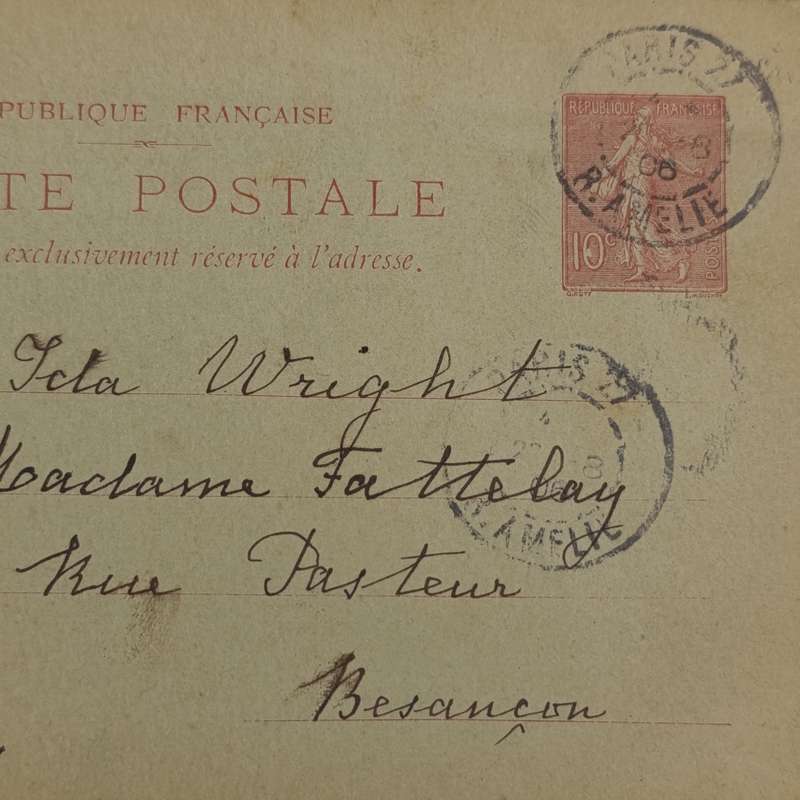 PUBLIQUE FRANÇAISE
TE POSTALE
exclusivement réservé à l'adresse.
RÉPUBLIQUE FRANÇAISE
10c
POSTES
PARIS 27
8
06
R. AMELIE
Ida Wright
Madame Fattelay
Rue Pasteur
Besançon
PARIS 27
22 8
06
R. AMELIE